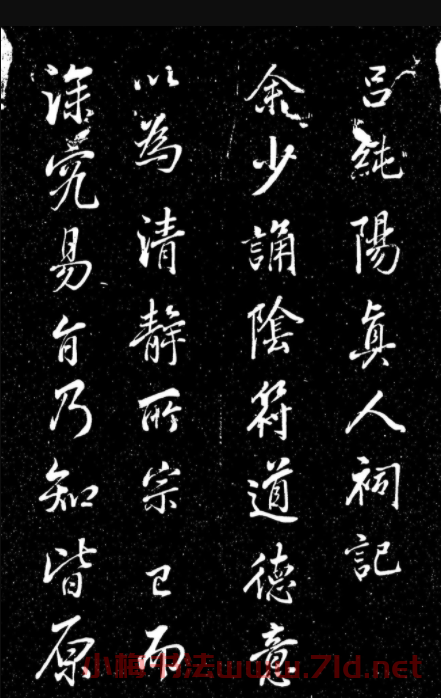 呂純陽真人祠記
余少誦陰符道德意
以為清靜所宗已而
深究易旨乃知皆原
小梅书法www.7ld.net